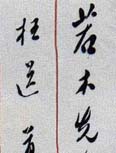 若木先
枉送首